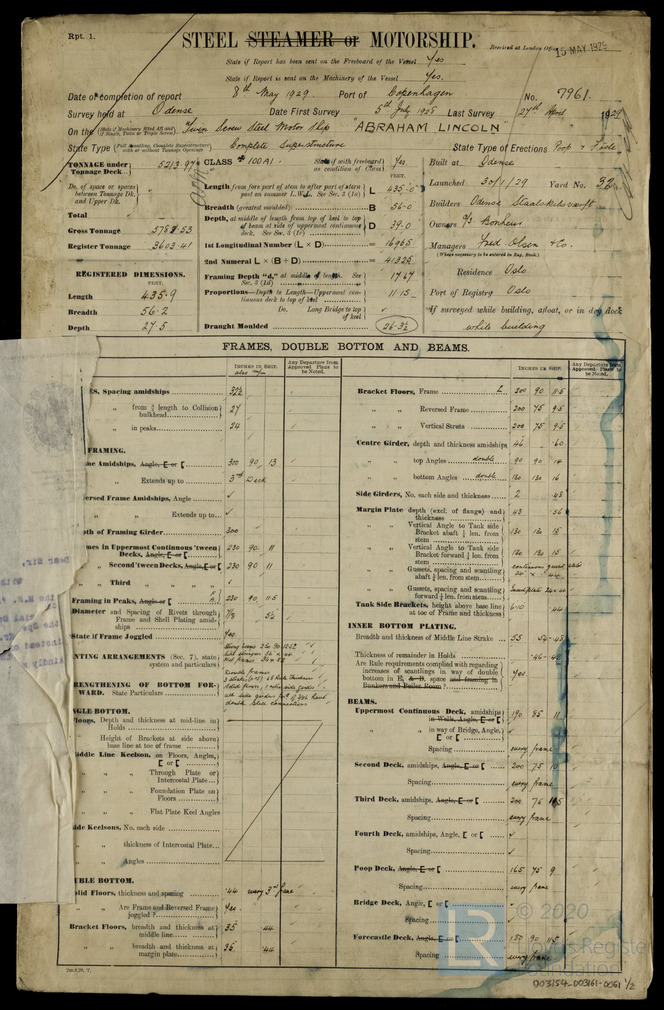 Rpt. 1.
STEEL STEAMER or MOTORSHIP.
Received at London Office 15 MAY 1929
State if Report has been sent on the Freeboard of the Vessel Yes
State if Report is sent on the Machinery of the Vessel Yes.
Date of completion of report 8th May 1929 Port of Copenhagen No. 7961.
Survey held at Odense Date First Survey 5th July 1928 Last Survey 27th April 1929
On the Twin Screw Steel Motor Ship "ABRAHAM LINCOLN"
State Type Complete Superstructure State Type of Erections Poop & F'cle
TONNAGE under Tonnage Deck 5213.97
Do. of space or spaces between Tonnage Dk. and Upper Dk.
Total
Gross Tonnage 5783.53
Register Tonnage 3603.41
REGISTERED DIMENSIONS.
FEET.
Length 435.9
Breadth 56.2
Depth 27.5
CLASS 100A1. State if with freeboard as condition of Class Yes
Length from fore part of stem to after part of stern post on summer L.W.L. See Sec. 3 (1a) L 435.0
Breadth (greatest moulded) B 56.0
Depth, at middle of length from top of keel to top of beam at side of uppermost continuous deck. See Sec. 3 (1c) D 39.0
1st Longitudinal Number (L × D) = 16965
2nd Numeral L × (B + D) = 41325
Framing Depth "d," at middle of length. See Sec. 3 (1d) 17.47
Proportions—Depth to Length—Uppermost continuous deck to top of keel 11.15
Do. Long Bridge to top of keel
Draught Moulded 26.3½
Built at Odense
Launched 30/1/29 Yard No. 32
Builders Odense Staalskibsværft
Owners A/S Bonheur
Managers Fred Olsen & Co.
(Where necessary to be entered in Reg. Book.)
Residence Oslo
Port of Registry Oslo
If surveyed while building, afloat, or in dry dock
while building
FRAMES, DOUBLE BOTTOM AND BEAMS.
INCHES IN SHIP.
Any Departure from Approved Plans to be Noted.
ES, Spacing amidships
" from ⅕ length to Collision bulkhead 27
" in peaks 24
FRAMING.
me Amidships, Angle, E or [ 300 90 13
" Extends up to 3rd Deck
versed Frame Amidships, Angle
" " Extends up to
pth of Framing Girder 300
mes in Uppermost Continuous 'tween Decks, Angle, E or [ 230 90 11
" Second 'tween Decks, Angle, E or [ 230 90 11
" Third " " " "
Framing in Peaks, Angle or [ 230 90 11.5
Diameter and Spacing of Rivets through Frame and Shell Plating amidships 7/8 5¼
State if Frame Joggled Yes
NTING ARRANGEMENTS (Sec. 7), state system and particulars
RENGTHENING OF BOTTOM FORWARD. State Particulars
NGLE BOTTOM.
Floors, Depth and thickness at mid-line in Holds
Height of Brackets at side above base line at toe of frame
iddle Line Keelson, on Floors, Angles, E or [
" " Through Plate or Intercostal Plate
" " Foundation Plate on Floors
" " Flat Plate Keel Angles
de Keelsons, No. each side
" " thickness of Intercostal Plate
" " Angles
UBLE BOTTOM.
olid Floors, thickness and spacing .44 every 3rd frame
" Are Frame and Reversed Frame joggled? Yes.
Bracket Floors, breadth and thickness at middle line 35 .44
" " breadth and thickness at margin plate 35 .44
Bracket Floors, Frame L 200 90 11.5
" " Reversed Frame 200 75 9.5
" " Vertical Struts 200 75 9.5
Centre Girder, depth and thickness amidships 46 .60
" " top Angles double 90 90 14
" " bottom Angles double 130 130 16
Side Girders, No. each side and thickness 2 .43
Margin Plate depth (excl. of flange) and thickness 43 .56
" " Vertical Angle to Tank side Bracket abaft ¼ len. from stem 130 130 15
" " Vertical Angle to Tank side Bracket forward ¼ len. from stem 130 130 15
" " Gussets, spacing and scantling abaft ¼ len. from stem
" " Gussets, spacing and scantling forward ¼ len. from stem
Tank Side Brackets, height above base line at toe of Frame and thickness .44
INNER BOTTOM PLATING.
Breadth and thickness of Middle Line Strake 53 .54-.48
Thickness of remainder in Holds .46-.42
Are Rule requirements complied with regarding increases of scantlings in way of double bottom in E. & B. space and framing in Bunkers and Boiler Room? Yes
BEAMS.
Uppermost Continuous Deck, amidships in Wells, Angle, E or [ 190 85 11
" " in way of Bridge, Angle, E or [
Spacing every frame
Second Deck, amidships, Angle, E or [ 200 75 10
Spacing every frame
Third Deck, amidships, Angle, E or [ 200 75 11.5
Spacing every frame
Fourth Deck, amidships, Angle, E or [
Spacing
Poop Deck, Angle, E or [ 165 75 9
Spacing every frame
Bridge Deck, Angle, E or [
Spacing
Forecastle Deck, Angle, E or [ 180 90 11.5
Spacing every frame
LR © 2020
Lloyd's Register
Foundation
D03154-D03161-0061 1/2